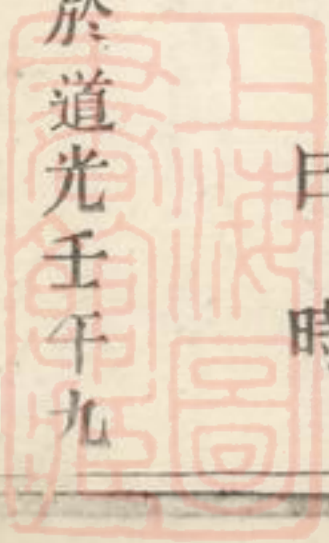 日時
於道光壬午九
上海圖書館藏